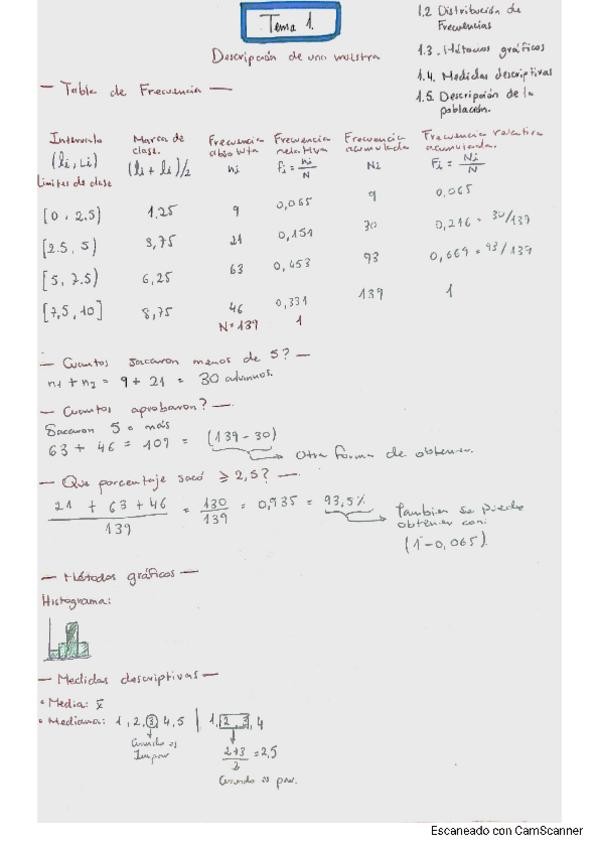 Tema 1.
1.2 Distribución de
Frecuencias
1.3. Métodos gráficos
1.4. Medidas descriptivas
1.5. Descripción de la
población.
Descripción de una muestra
— Tabla de Frecuencia —
Intervalo Marca de clase. Frecuencia absoluta Frecuencia relativa Frecuencia acumulada Frecuencia relativa acumulada.
(li, Li) (li + li)/2 ni fi = ni/N Ni Fi = Ni/N
Límites de clase
[0, 2.5) 1.25 9 0,065 9 0,065
[2.5, 5) 3,75 21 0,151 30 0,216 = 30/139
[5, 7.5) 6,25 63 0,453 93 0,669 = 93/139
[7,5, 10] 8,75 46 0,331 139 1
N=139 1
— Cuantos sacaron menos de 5? —
n1 + n2 = 9 + 21 = 30 alumnos.
— Cuantos aprobaron? —
Sacaron 5 o más
63 + 46 = 109 = (139 - 30)
Otra forma de obtener.
— Que porcentaje sacó ≥ 2,5? —
21 + 63 + 46 / 139 = 130/139 = 0,935 = 93,5%
Tambien se puede
obtener con:
(1 - 0,065).
— Métodos gráficos —
Histograma:
— Medidas descriptivas —
• Media: x̄
• Mediana: 1, 2, 3, 4, 5 | 1, 2, 3, 4
Cuando es
Impar
2+3/2 = 2,5
Cuando es par.
Escaneado con CamScanner